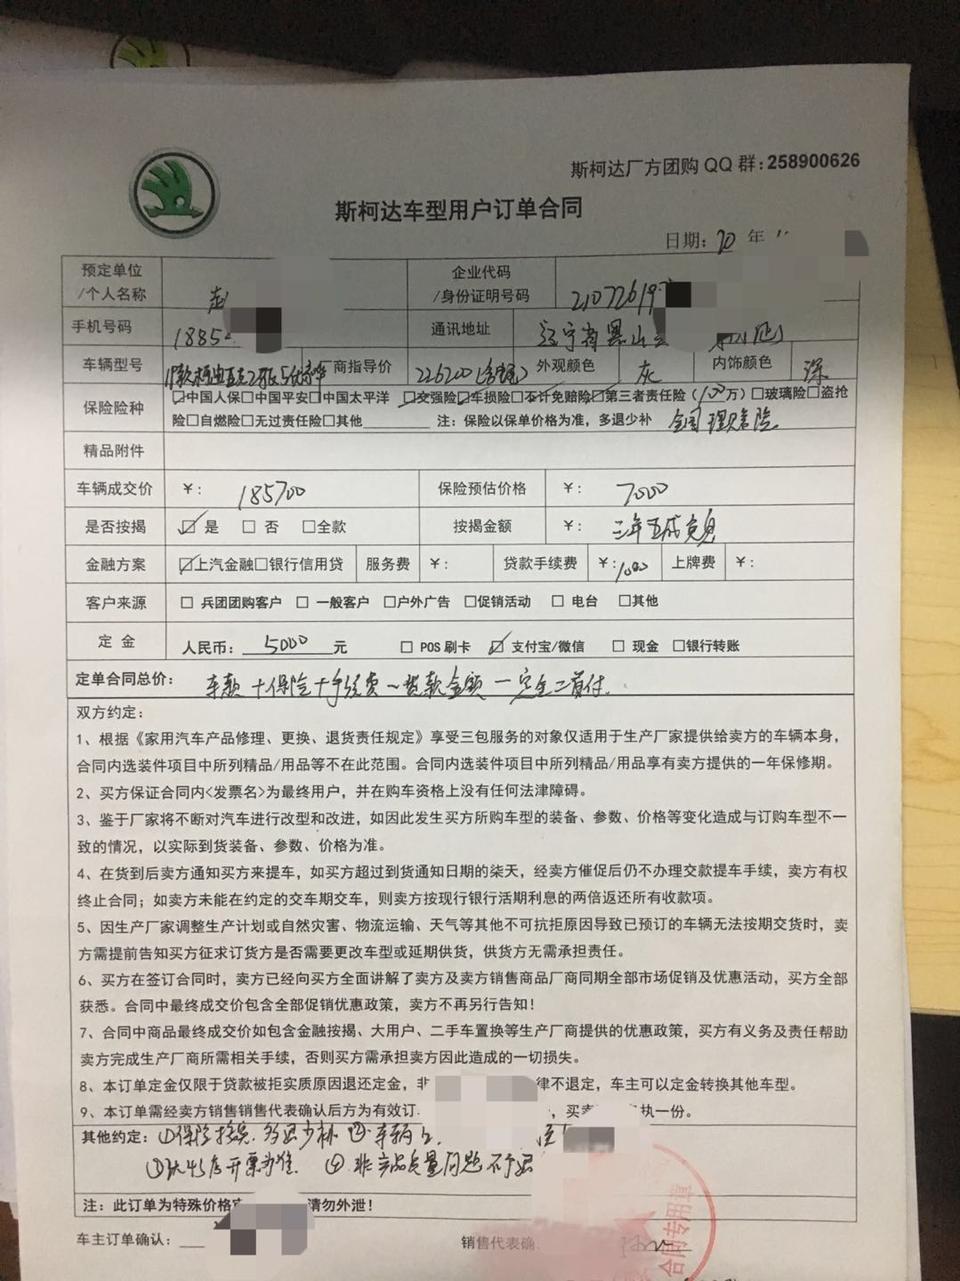 斯柯达厂方团购 QQ 群：258900626
斯柯达车型用户订单合同
日期：20 年
预定单位/个人名称 赵 企业代码/身份证明号码 2107261977
手机号码 1885 通讯地址 辽宁省黑山
车辆型号 厂商指导价 226200 外观颜色 灰 内饰颜色 深
保险险种 ☑中国人保□中国平安□中国太平洋 ☑交强险☑车损险☑不计免赔险☑第三者责任险（100万）□玻璃险□盗抢
险□自燃险□无过责任险□其他 注：保险以保单价格为准，多退少补 全国理赔险
精品附件
车辆成交价 ￥：185700 保险预估价格 ￥：7000
是否按揭 ☑是 □否 □全款 按揭金额 ￥：三年五成免息
金融方案 ☑上汽金融□银行信用贷 服务费 ￥： 贷款手续费 ￥：1000 上牌费 ￥：
客户来源 □ 兵团团购客户 □ 一般客户 □户外广告 □促销活动 □ 电台 □其他
定 金 人民币：5000 元 □ POS 刷卡 ☑ 支付宝/微信 □ 现金 □银行转账
定单合同总价： 车款＋保险＋手续费－贷款金额－定金＝首付.
双方约定：
1、根据《家用汽车产品修理、更换、退货责任规定》享受三包服务的对象仅适用于生产厂家提供给卖方的车辆本身，
合同内选装件项目中所列精品/用品等不在此范围。合同内选装件项目中所列精品/用品享有卖方提供的一年保修期。
2、买方保证合同内<发票名>为最终用户，并在购车资格上没有任何法律障碍。
3、鉴于厂家将不断对汽车进行改型和改进，如因此发生买方所购车型的装备、参数、价格等变化造成与订购车型不一
致的情况，以实际到货装备、参数、价格为准。
4、在货到后卖方通知买方来提车，如买方超过到货通知日期的柒天，经卖方催促后仍不办理交款提车手续，卖方有权
终止合同；如卖方未能在约定的交车期交车，则卖方按现行银行活期利息的两倍返还所有收款项。
5、因生产厂家调整生产计划或自然灾害、物流运输、天气等其他不可抗拒原因导致已预订的车辆无法按期交货时，卖
方需提前告知买方征求订货方是否需要更改车型或延期供货，供货方无需承担责任。
6、买方在签订合同时，卖方已经向买方全面讲解了卖方及卖方销售商品厂商同期全部市场促销及优惠活动，买方全部
获悉。合同中最终成交价包含全部促销优惠政策，卖方不再另行告知！
7、合同中商品最终成交价如包含金融按揭、大用户、二手车置换等生产厂商提供的优惠政策，买方有义务及责任帮助
卖方完成生产厂商所需相关手续，否则买方需承担卖方因此造成的一切损失。
8、本订单定金仅限于贷款被拒实质原因退还定金，非 律不退定，车主可以定金转换其他车型。
9、本订单需经卖方销售销售代表确认后方为有效订 ，买卖 执一份。
其他约定：①保险 多退少补 ②车辆
③以4S店开票为准 ④非产品质量问题不予退
注：此订单为特殊价格 请勿外泄！
车主订单确认： 销售代表确
合同专用章